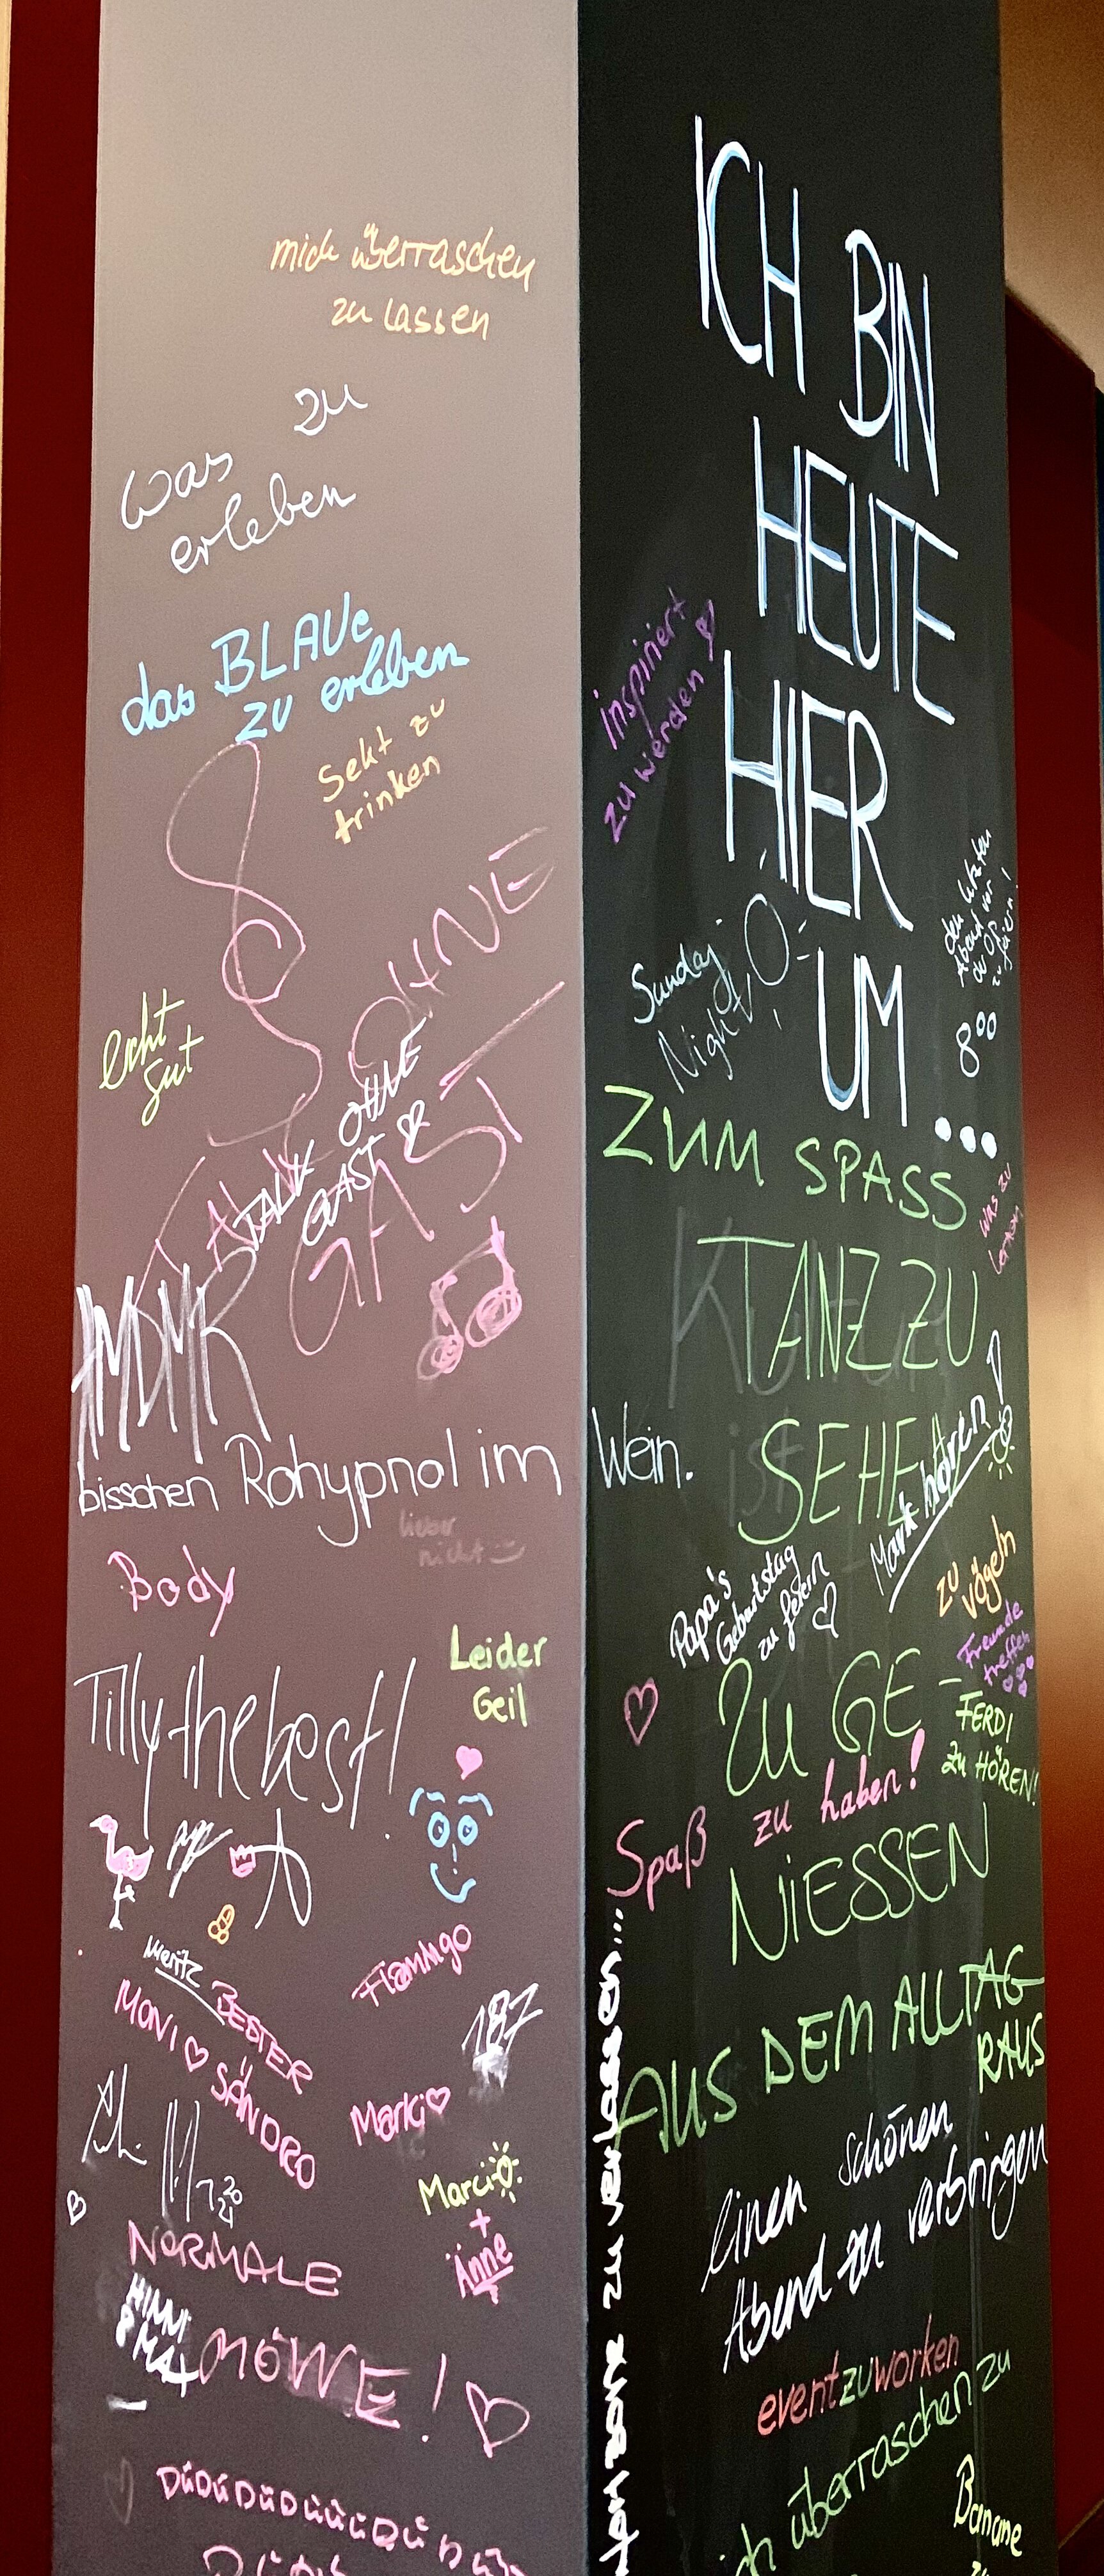 mich überraschen
zu lassen
zu
was
erleben
das BLAUe
zu erleben
Sekt zu
trinken
echt
gut
OHNE
TALK OHNE
GAST
GAST
bisschen Rohypnol im
lieber
nicht
Body
Leider
Geil
Tilly the best!
Moritz
BESTER
Flamingo
MONI
SANDRO
187
Marki
Marci
+
Änne
B
NORMALE
HINNI
& MAX
MÖWE!
ICH BIN
HEUTE
HIER
UM...
inspiriert
zu werden
Sunday
Night
den letzten
Abend vor
der OP
zu feiern!
8⁰⁰
ZUM SPASS
was zu
lernen
Kultur
ist
TANZ ZU
SEHEN
Wein.
Mark hören!
Papa's
Geburtstag
zu feiern
zu
vögeln
Freunde
treffen
ZU GE-
FERDI
ZU HÖREN!
Spaß zu haben!
NIESSEN
AUS DEM ALLTAG
RAUS
einen schönen
Abend zu verbringen
eventzuworken
überraschen zu
Banane
zu verlassen...